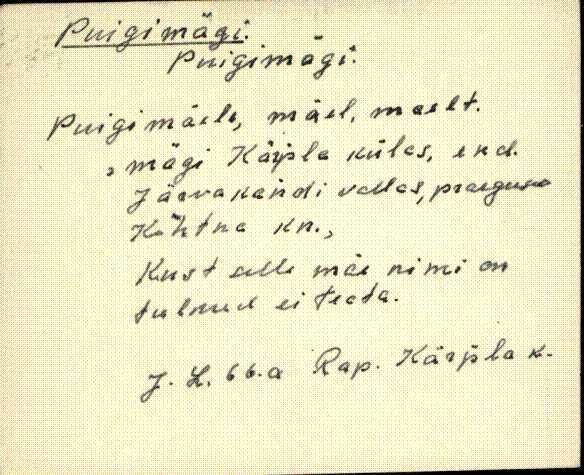 Puigimägi.
Puigimägi.
Puigimäele, mäel, mäelt.
, mägi Kärpla külas, end.
Järvakandi vallas, praeguse
Kohtna kn.,
Kust selle mäe nimi on
tulnud ei teata.
J. L. 66.a Rap. Kärpla k.